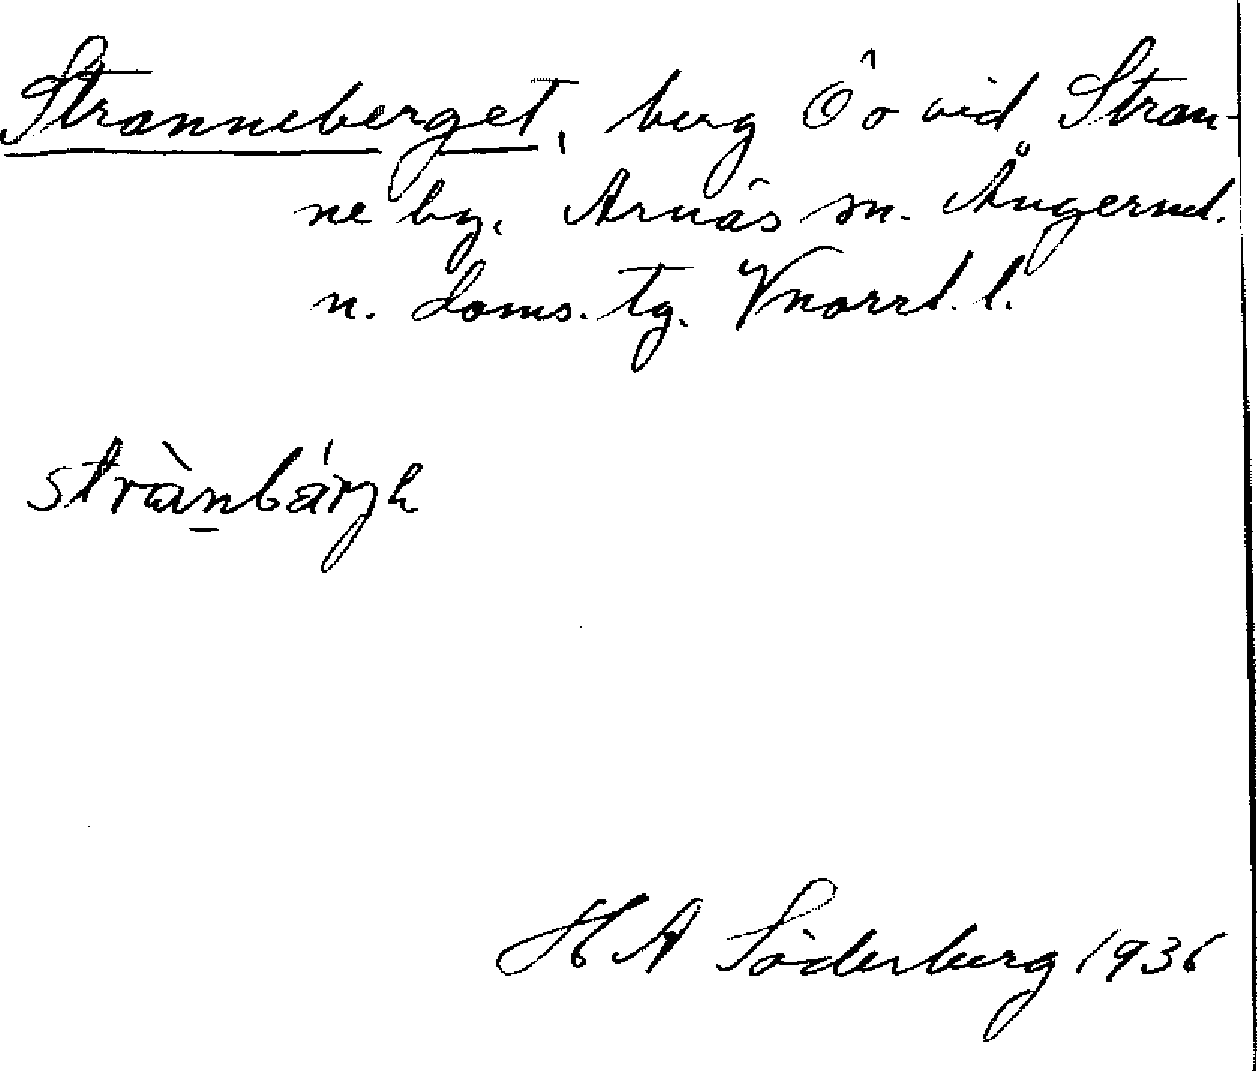 Stranneberget, berg Ö o vid Stran-
ne by. Arnäs sn. Ångerml.
n. doms. tg. Vnorrl. l.
strànbárjh
H A Söderberg 1936